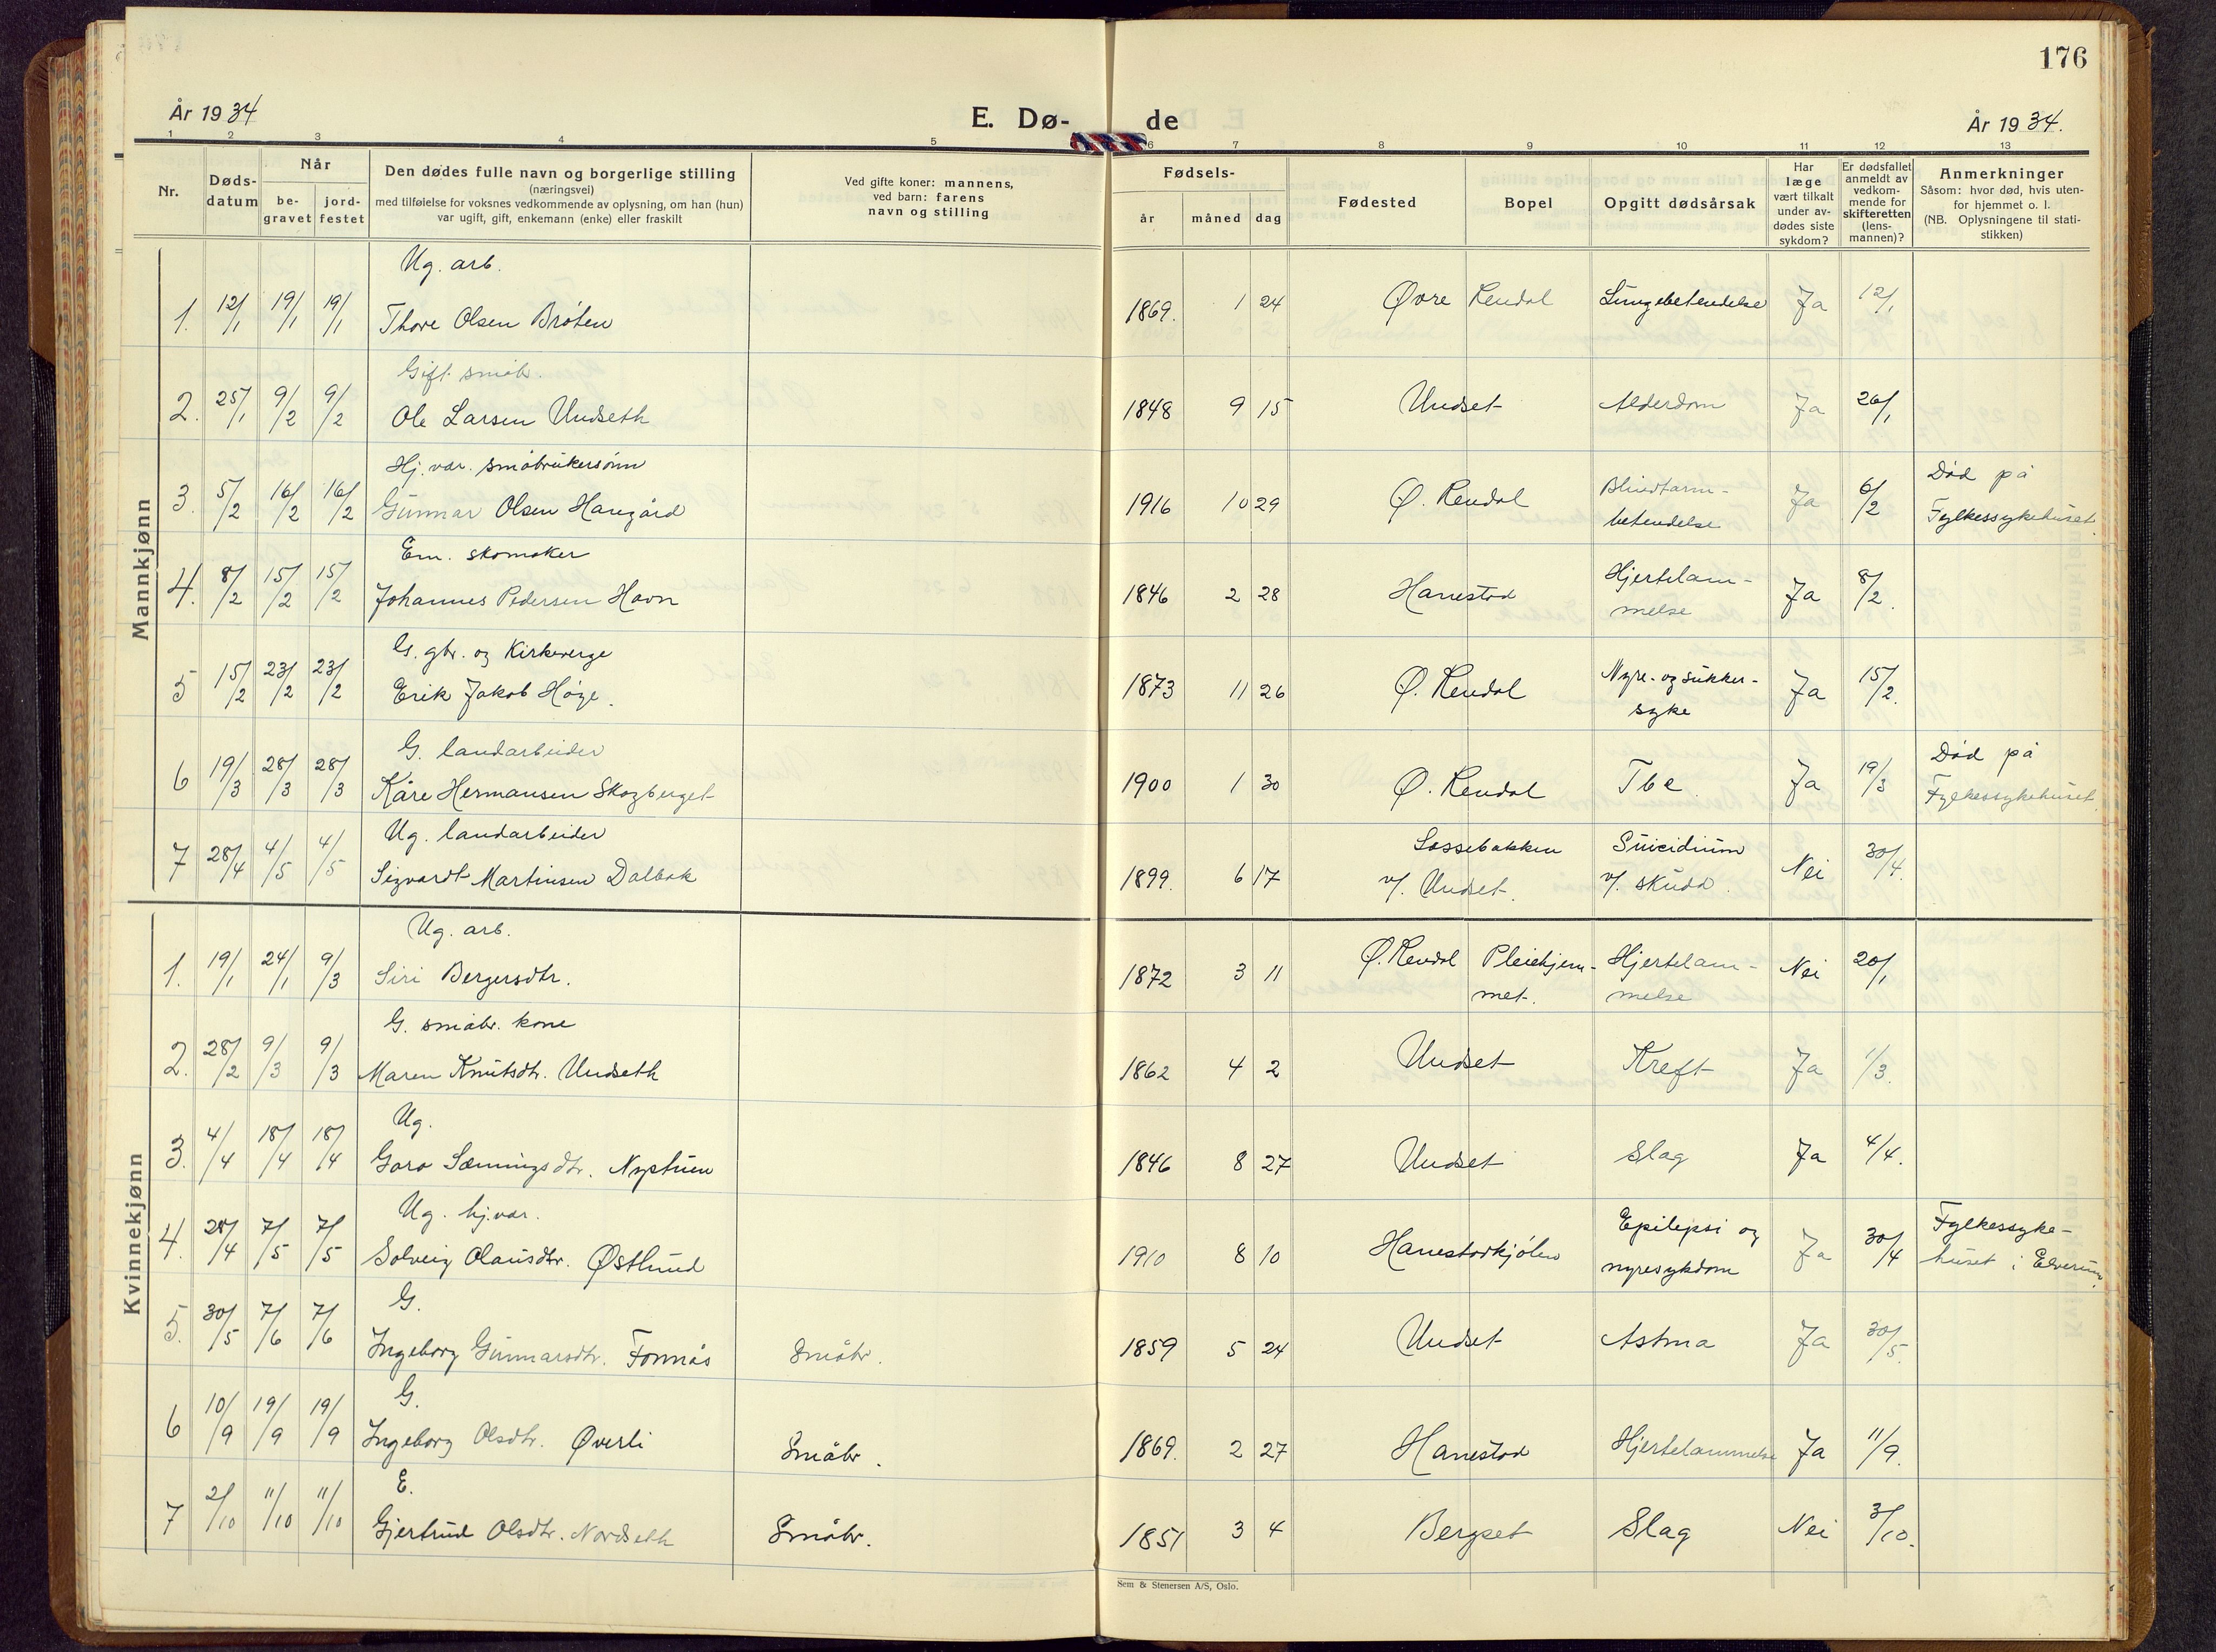 176
År 1934
E. Dø-
de
År 1934.
1 2 3 4 5 6 7 8 9 10 11 12 13
Nr.
Døds-
datum
Når
be-
gravet
jord-
festet
Den dødes fulle navn og borgerlige stilling
(næringsvei)
med tilføielse for voksnes vedkommende av oplysning, om han (hun)
var ugift, gift, enkemann (enke) eller fraskilt
Ved gifte koner: mannens,
ved barn: farens
navn og stilling
Fødsels-
år måned dag
Fødested
Bopel
Opgitt dødsårsak
Har
læge
vært tilkalt
under av-
dødes siste
sykdom?
Er dødsfallet
anmeldt av
vedkom-
mende for
skifteretten
(lens-
mannen)?
Anmerkninger
Såsom: hvor død, hvis uten-
for hjemmet o. l.
(NB. Oplysningene til stati-
stikken)
Mannkjønn
Ug. arb.
1. 12/1 19/1 19/1 Thore Olsen Bråten 1869. 1 24 Øvre Rendal Lungebetendelse Ja 12/1
Gift småbr.
2. 25/1 9/2 9/2 Ole Larsen Undseth 1848 9 15 Undset Alderdom Ja 26/1
Hj. vær. småbrukersønn
3. 5/2 16/2 16/2 Gunnar Olsen Hangård 1916 10 29 Ø. Rendal Blindtarm-
betendelse Ja 6/2 Død på
Fylkessykehuset.
Em. skomaker
4. 8/2 15/2 15/2 Johannes Pedersen Havn 1846 2 28 Hanestad Hjertelam-
melse Ja 8/2.
G. gbr. og Kirkeverge
5 15/2 23/2 23/2 Erik Jakob Høye. 1873 11 26 Ø. Rendal Nyre- og sukker-
syke Ja 15/2.
G. landarbeider
6 19/3 28/3 28/3 Kåre Hermansen Skogberget 1900 1 30 Ø. Rendal Tbc. Ja 19/3 Død på
Fylkessykehuset.
Ug. landarbeider
7 28/4 4/5 4/5 Sigvardt Martinsen Dalbak 1899. 6 17 Lossebakken
v/. Undset. Suicidium
v/. skudd. Nei 30/4.
Kvinnekjønn
Ug. arb.
1. 19/1 24/1 9/3 Siri Bergersdtr. 1872 3 11 Ø. Rendal Pleiehjem-
met. Hjertelam-
melse Nei 20/1
G. småbr. kone
2. 28/2 9/3 9/3 Maren Knutsdtr. Undseth 1862 4 2 Undset Kreft Ja 1/3.
Ug.
3. 4/4 18/4 18/4 Goro Sæmingsdtr. Nyptuen 1846 8 27 Undset Slag Ja 4/4.
Ug. hj.vær.
4. 28/4 7/5 7/5 Solveig Olausdtr. Østlund 1910 8 10 Hanestadkjølen Epilepsi og
nyresykdom Ja 30/4 Fylkessyke-
huset i Elverum.
G.
5. 30/5 7/6 7/6 Ingeborg Gunnarsdtr. Fonnås Småbr. 1859 5 24 Undset Astma Ja 30/5.
G.
6 10/9 19/9 19/9 Ingeborg Olsdtr. Øverli Småbr. 1869. 2 27 Hanestad Hjertelammelse Ja 11/9.
E.
7 2/10 11/10 11/10 Gjertrud Olsdtr. Nordseth Småbr. 1851 3 4 Bergset Slag Nei 3/10.
Sem & Stenersen A/S, Oslo.